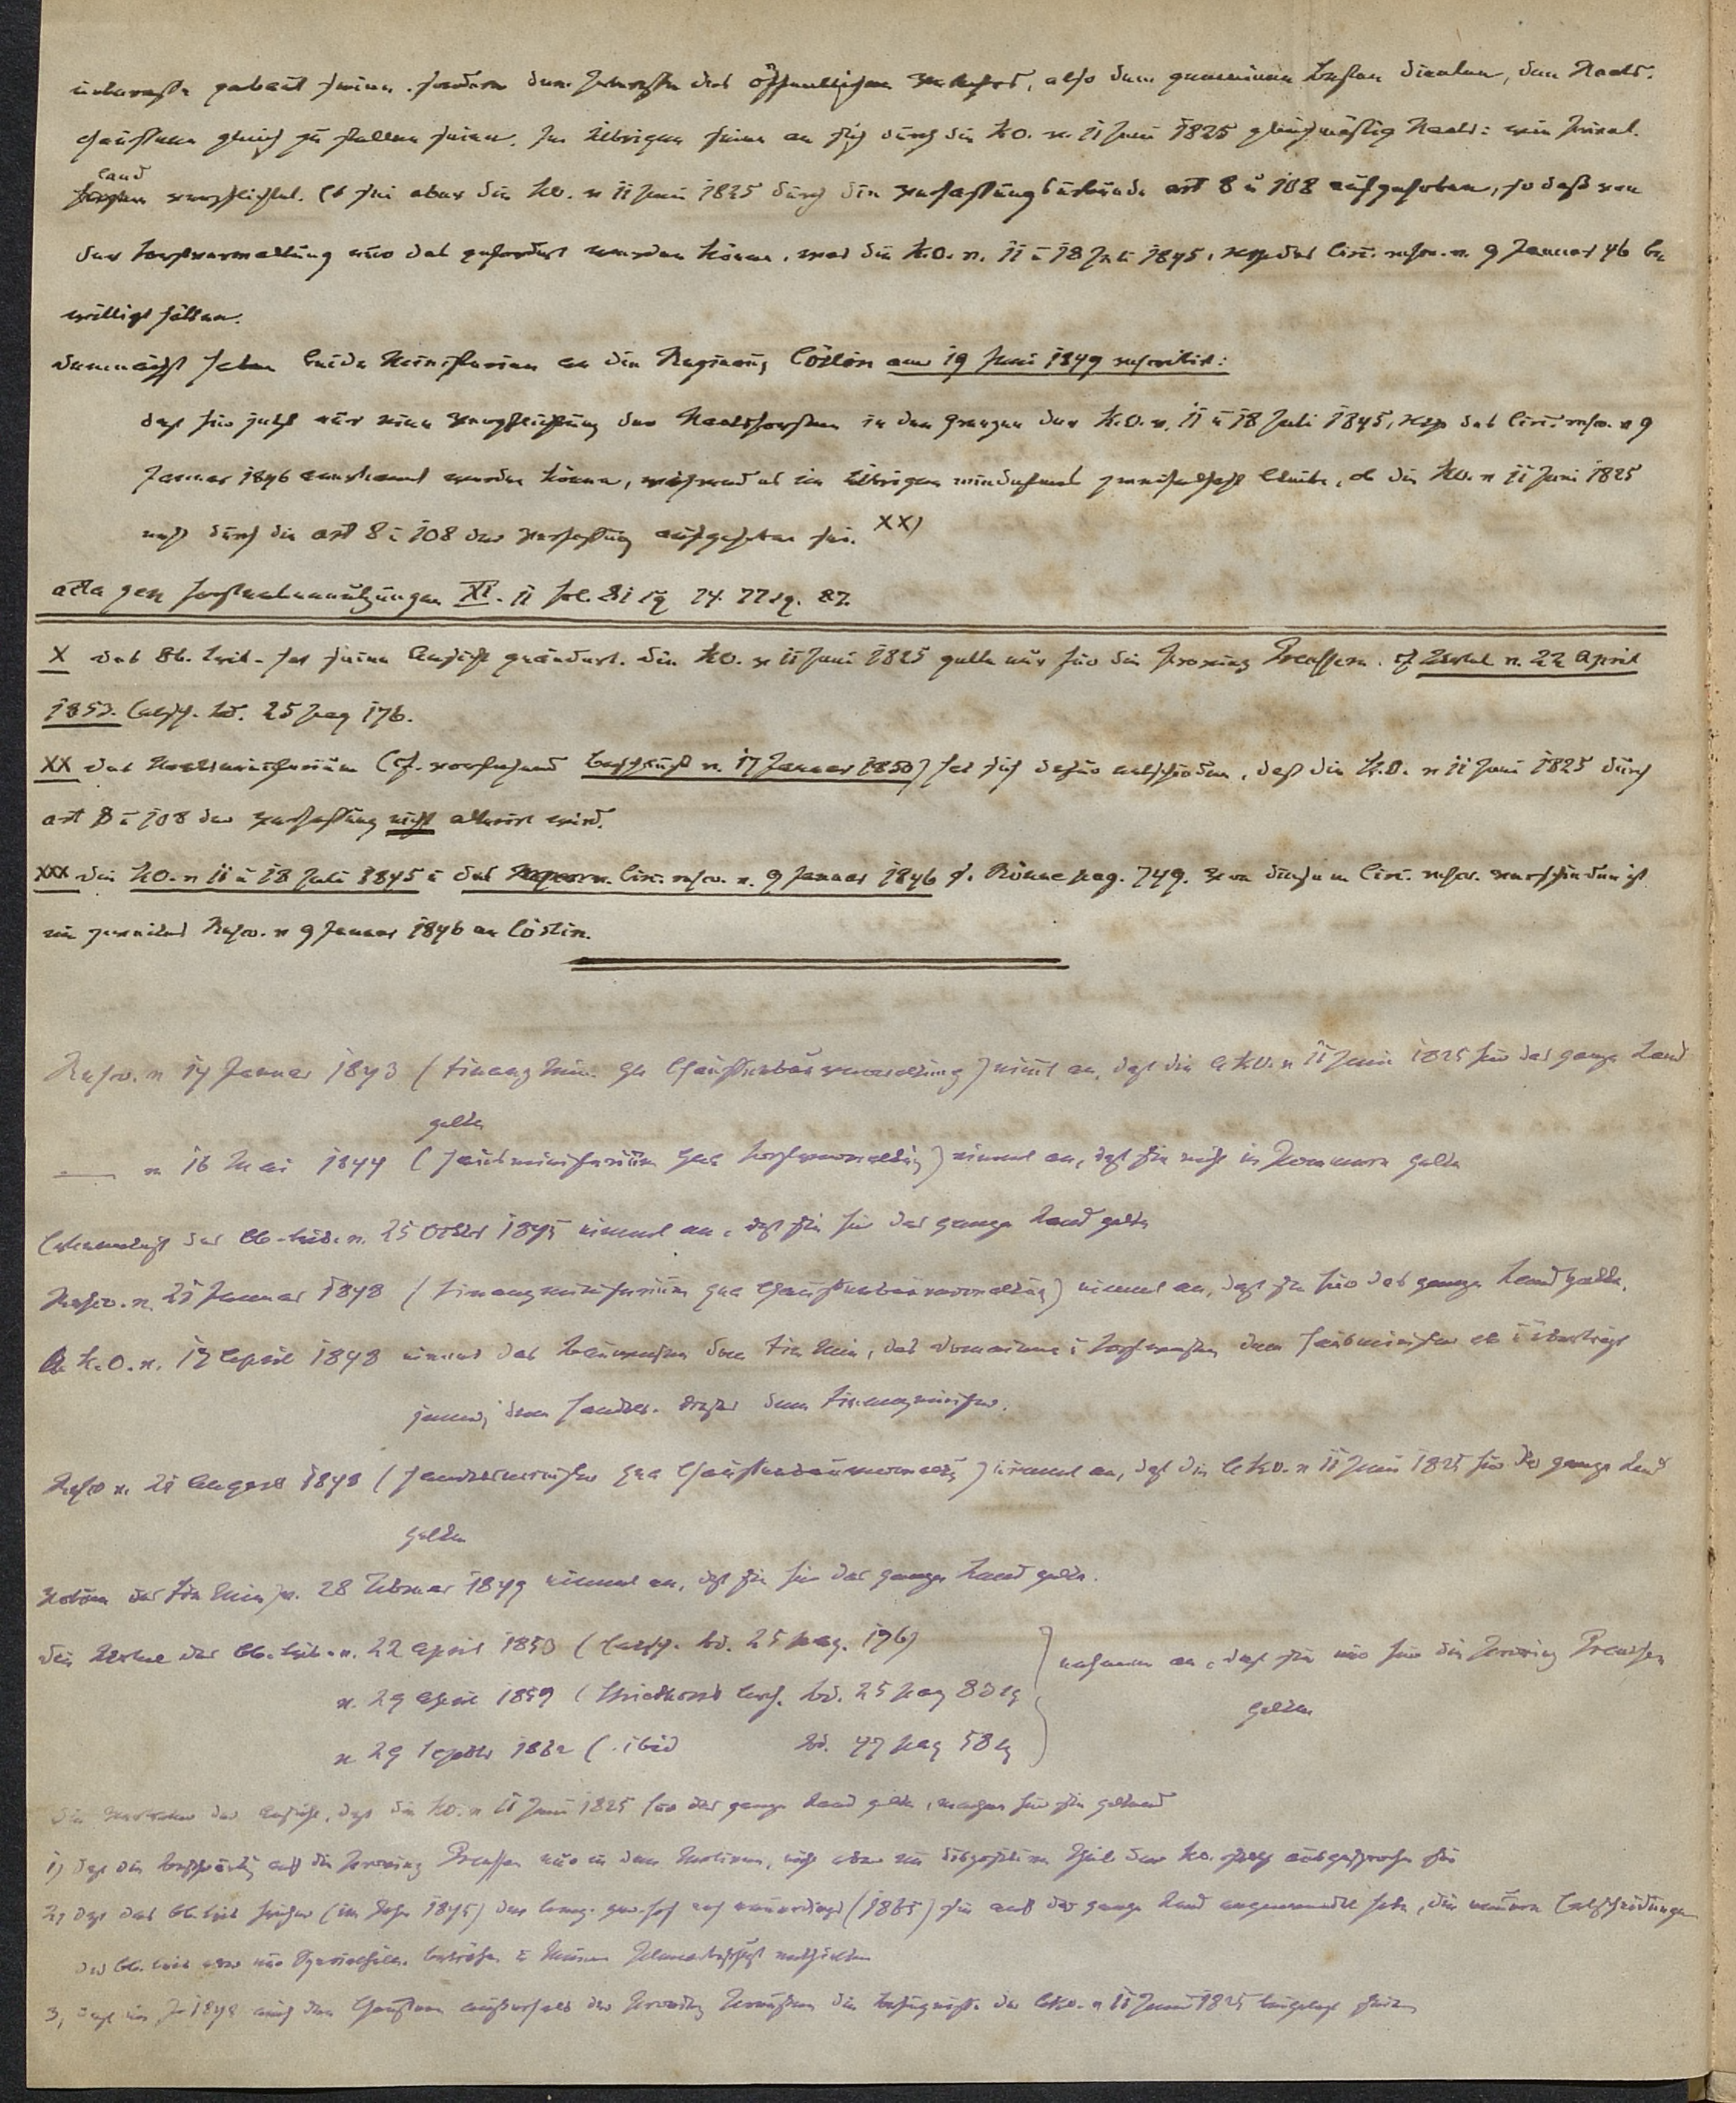 interesse gebaut seien, sondern dem Interesse des öffentlichen Verkehrs, also dem gemeinen Besten dienten, den Staats-
chausseen gleich zu stellen seien. Im Übrigen seien an sich durch die KO. v. 11 Juni 1825 gleichmäßig Staats: wie Privat-
land
forsten verpflichtet. Es sei aber die KO. v 11 Juni 1825 durch die Verfassungsurkunde art 8 u 108 aufgehoben, so daß von
der Forstverwaltung nur das gefordert werden könne, was die K.O. v. 11 u 18 Juli 1845, resp das Circ. rescr. v. 9 Januar 46 be
willigt hätten.
Demnächst haben beide Ministerien an die Regierung Cöslin am 19 Juni 1849 rescribirt:
daß für jetzt nur eine Verpflichtung der Staatsforsten in den Grenzen der K.O. v. 11 u 18 Juli 1845, resp des Circ. rescr. v 9
Januar 1846 anerkannt werden könne, während es im Übrigen mindestens zweifelhaft bleibe, ob die KO. v 11 Juni 1825
nicht durch die art 8 u 108 der Verfassung aufgehoben sei. XX)
acta gen Forstnebennutzungen XI. 11 fol. 81 sq 74. 77 sq. 87.
X das Ob. Trib. hat seine Ansicht geändert. Die KO. v 11 Juni 1825 gelte nur für die Provinz Preussen. cf Urthel v. 22 April
1853. Entsch. Bd. 25 pag 176.
XX das Staatsministerium (cf. vorstehend Beschluß v. 17 Januar 1850) hat sich dafür entschieden, daß die K.O. v 11 Juni 1825 durch
art 8 u 108 der Verfassung nicht alterirt wird.
XXX die KO. v 11 u 18 Juli 1845 u das Circ. rescr. v. 9 Januar 1846 cf. Rönne pag. 749. Von diesem Circ. rescr. verschieden ist
ein zweites Rescr. v 9 Januar 1846 an Cöslin.
Rescr. v 14 Januar 1843 (Finanz Min. qua Chausseebauverwaltung) nimt an, daß die AKO. v 11 Juni 1825 für das ganze Land
gelte
— v 16 Mai 1844 (Hausministerium qua Forstverwaltung) nimmt an, daß sie nicht in Pommern gelte
Erkenntniß des Ob-trib. v. 25 Octbr 1845 nimmt an, daß sie für das ganze Land gelte
Rescr. v. 21 Januar 1848 (Finanzministerium qua Chausseebauverwaltung) nimmt an, daß sie für das ganze Land gelte.
A. K.O. v. 17 April 1848 nimmt das Bauwesen dem Fin Min, das Domainen u Forstwesen dem Hausminister ab u überträgt
jenes dem Handels- dieses dem Finanzminister.
Rescr v. 21 August 1848 (Handelsminister qua Chausseebauverwaltg) nimmt an, daß die AKO. v 11 Juni 1825 für das ganze Land
gelte
Votum des Fin Min v. 28 Februar 1849 nimmt an, daß sie für das ganze Land gelte.
die Urthel des Ob. trib. v. 22 April 1853 (Entsch. Bd. 25 pag. 176)
v. 29 April 1859 (Striethorst Arch. Bd. 25 pag 83 sq
v 29 Septbr 1862 (. ibid Bd. 47 pag 58 sq
nehmen an, daß sie nur für die Provinz Preussen
gelten
Die Vertreter der Ansicht, daß die KO. v 11 Juni 1825 für das ganze Land gelte, machen für sie geltend
1) daß die Beschränkung auf die Provinz Preussen nur in den Motiven, nicht aber im dispositiven Theil der KO. ausgesprochen sei
2, daß das Ob. trib früher (im Jahr 1845) der Comp. ger. hof noch neuerdings (1865) sie auf das ganze Land angewendet habe, die neueren Entscheidungen
des Ob. trib aber nur Specialfälle beträfen u keinen Plenarbeschluß enthielten
3, daß im Jahr 1848 auch den Chausseen außerhalb der Provinz Preussen die Befugnisse der AKO. v 11 Juni 1825 beigelegt seien